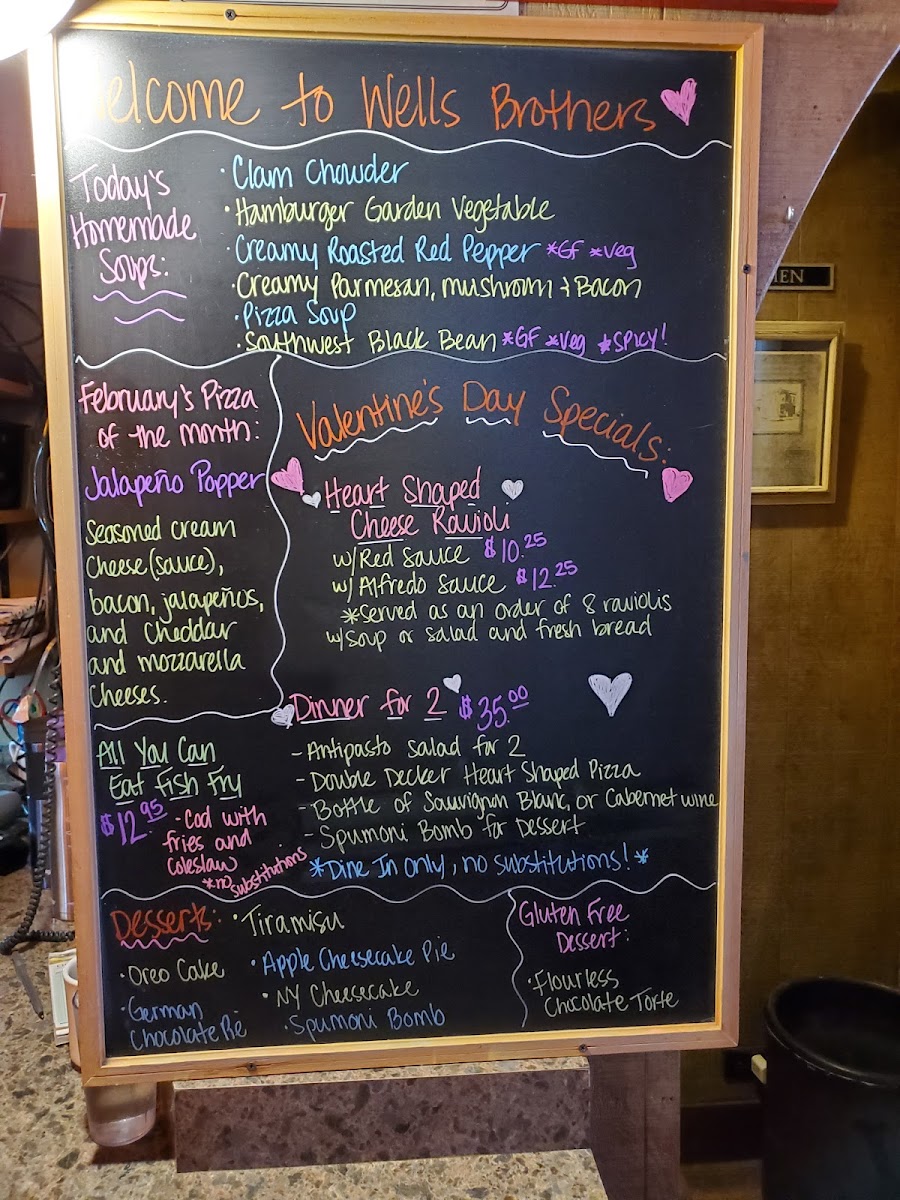 Welcome to Wells Brothers
Today's
Homemade
Soups:
· Clam Chowder
· Hamburger Garden Vegetable
· Creamy Roasted Red Pepper *GF *Veg
· Creamy Parmesan, mushroom + Bacon
· Pizza Soup
· Southwest Black Bean *GF *Veg *Spicy!
February's Pizza
of the month:
Jalapeño Popper
Seasoned cream
Cheese (sauce),
bacon, jalapeños,
and Cheddar
and mozzarella
Cheeses.
Valentine's Day Specials:
Heart Shaped
Cheese Ravioli
w/Red Sauce $10.25
w/Alfredo Sauce $12.25
*Served as an order of 8 raviolis
w/Soup or Salad and fresh bread
Dinner for 2 $35.00
- Antipasto Salad for 2
- Double Decker Heart Shaped Pizza
- Bottle of Sauvignon Blanc, or Cabernet wine
- Spumoni Bomb for Dessert
*Dine In only, no substitutions! *
All You Can
Eat Fish Fry
$12.95 - Cod with
fries and
Coleslaw
*no substitutions
Desserts:
· Tiramisu
· Oreo Cake
· Apple Cheesecake Pie
· German
Chocolate Pie
· NY Cheesecake
· Spumoni Bomb
Gluten Free
Dessert:
· Flourless
Chocolate Torte
MEN